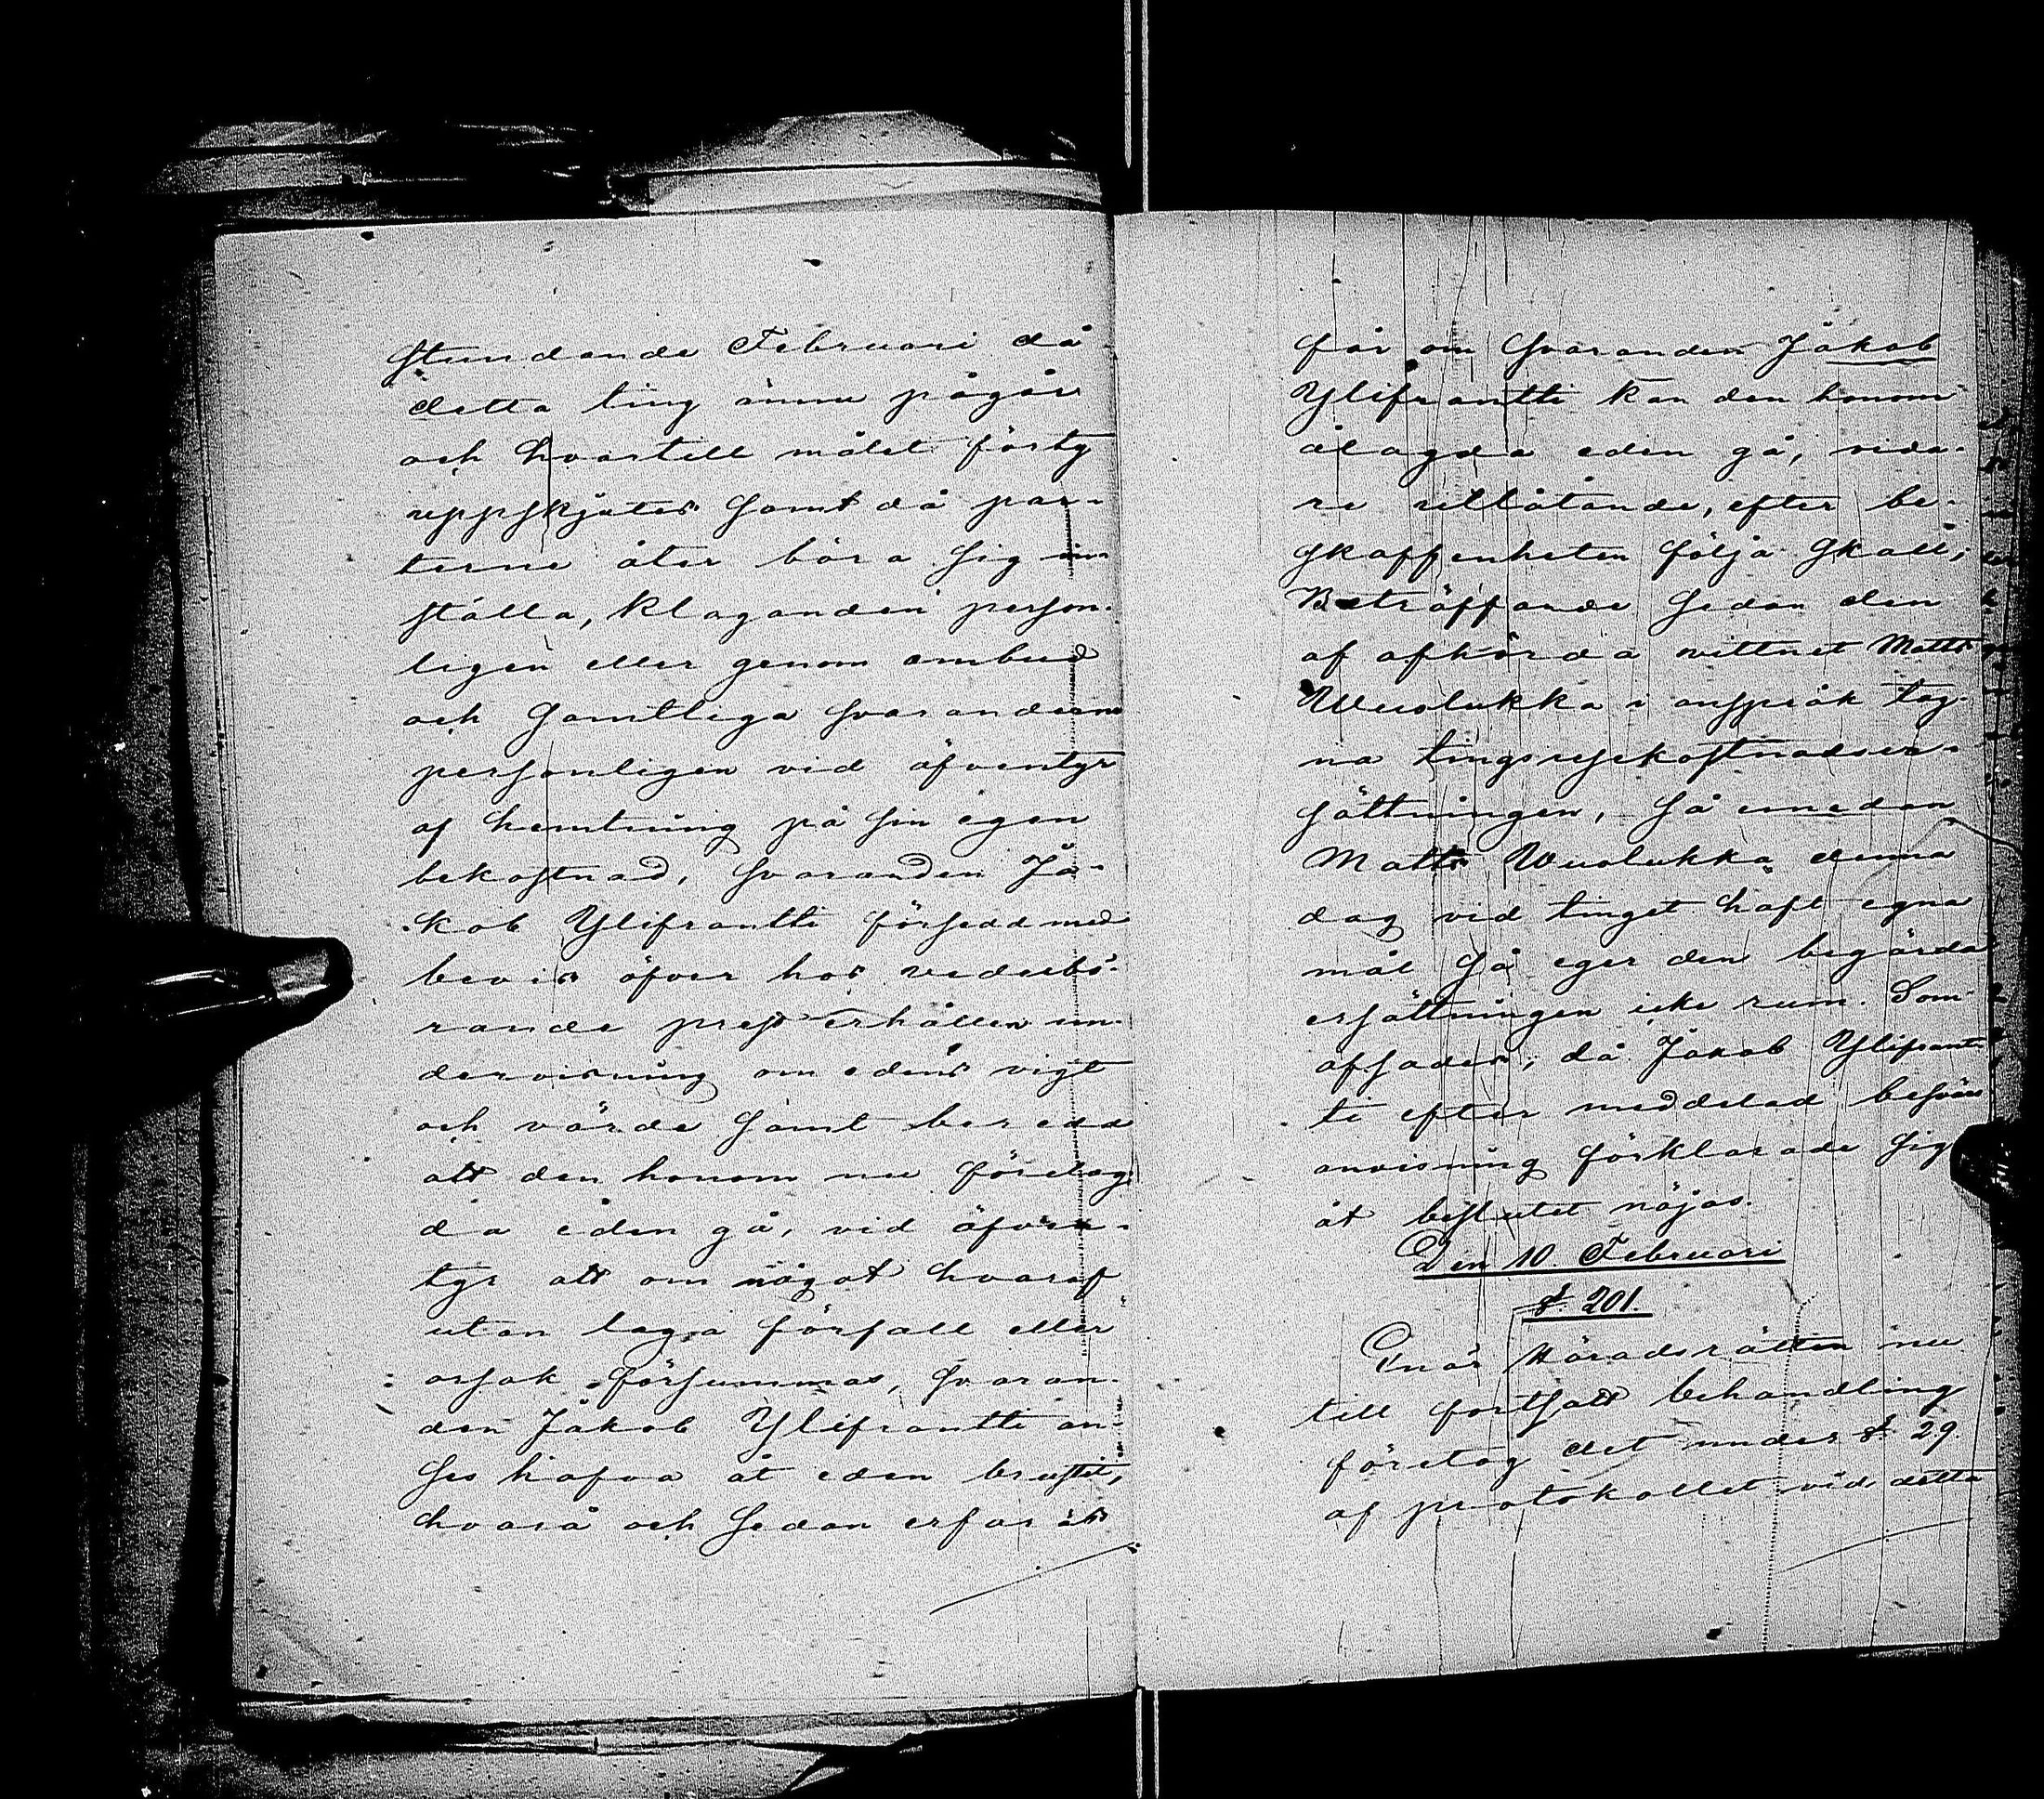 stundande Februari då
detta ting ännu pågår
och hvartill målet förty
uppskjutes samt då par-
terne åter böra sig in-
ställa, klaganden person-
ligen eller genom ombud
och samtliga svaranderne
personligen vid äfventyr
af hemtning på sin egen
bekostnad, svaranden Ja-
kob Ylifrantti försedd med
bevis öfver hos vederbö-
rande prest erhållen un-
dervisning om edens vigt
och värde samt beredd
att den honom nu förelag-
da eden gå, vid äfven-
tyr att om något hvaraf
utan laga förfall eller
orsak försummas, svaran-
den Jakob Ylifrantti an-
ses hafva åt eden brustit,
hvarå och sedan erfarits
får om svaranden Jakob
Ylifrantti kan den honom
ålagda eden gå, vida-
re utlåtande, efter be-
skaffenheten följa skall;
Beträffande sedan den
af afhörda vittnet Matts
Wuolukka i anspråk tag-
na tingsresekostnadser-
sättningen, så emedan
Matts Wuolukka denna
dag vid tinget haft egna
mål så eger den begärda
ersättningen icke rum. Som
afsades; då Jakob Ylifrant-
ti efter meddelad besvärs
anvisning förklarade sig
åt beslutet nöjas.
Den 10. Februari
§. 201.
Enär Häradsrätten nu
till fortsatt behandling
företog det under § 29
af protokollet vid detta